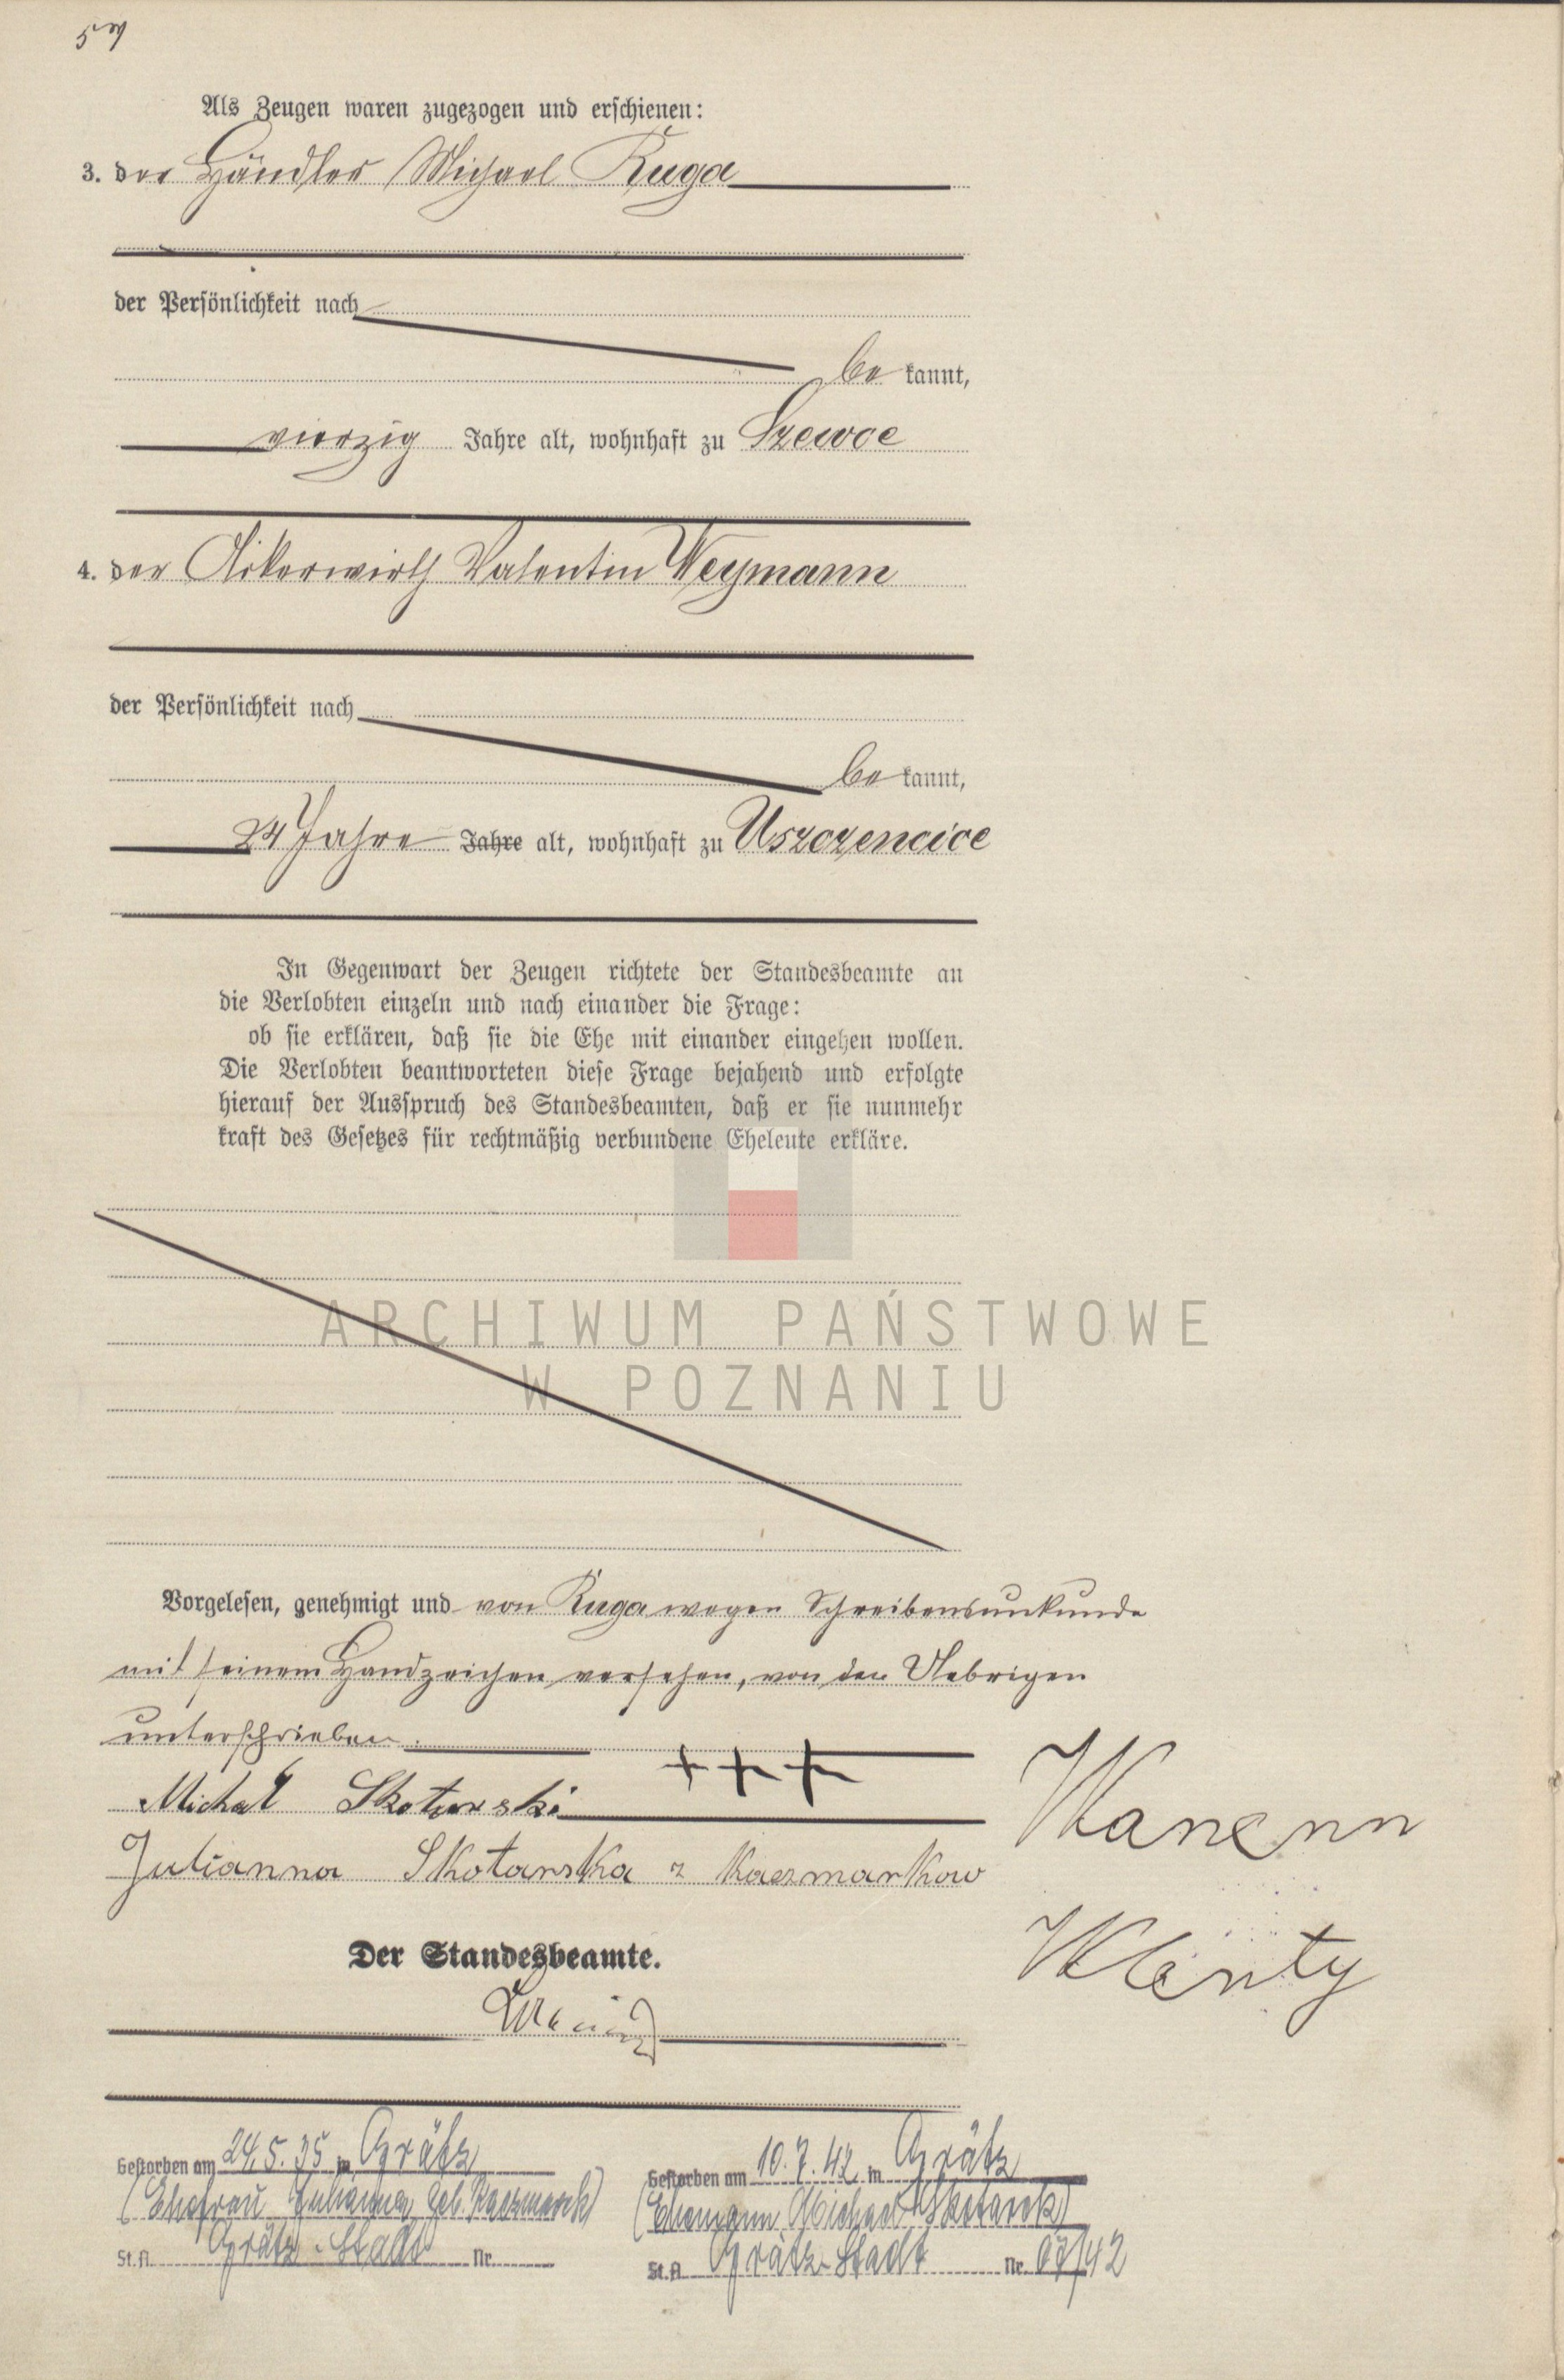 Als Zeugen waren zugezogen und erschienen:
3. der Händler Michael Ruga
der Persönlichkeit nach
be kannt,
vierzig Jahre alt, wohnhaft zu Szewce
4. der Ackerwirth Valentin Weymann
der Persönlichkeit nach
be kannt,
24 Jahre Jahre alt, wohnhaft zu Uszczencice
In Gegenwart der Zeugen richtete der Standesbeamte an
die Verlobten einzeln und nach einander die Frage:
ob sie erklären, daß sie die Ehe mit einander eingehen wollen.
Die Verlobten beantworteten diese Frage bejahend und erfolgte
hierauf der Ausspruch des Standesbeamten, daß er sie nunmehr
kraft des Gesetzes für rechtmäßig verbundene Eheleute erkläre.
ARCHIWUM PAŃSTWOWE
W POZNANIU
Vorgelesen, genehmigt und von Ruga wegen Schreibensunkunde
mit seinem Handzeichen versehen, von den Uebrigen
unterschrieben.
+++
Michał Skotarski
Julianna Skotarska z Kaczmarkow
Der Standesbeamte.
Gestorben am 24.5.35 in Grätz
(Ehefrau Julianna geb. Kaczmarek)
St.A. Grätz-Stadt Nr.
Gestorben am 10.7.42 in Grätz
(Ehemann Michael Skotarski)
St.A. Grätz-Stadt Nr. 67/42